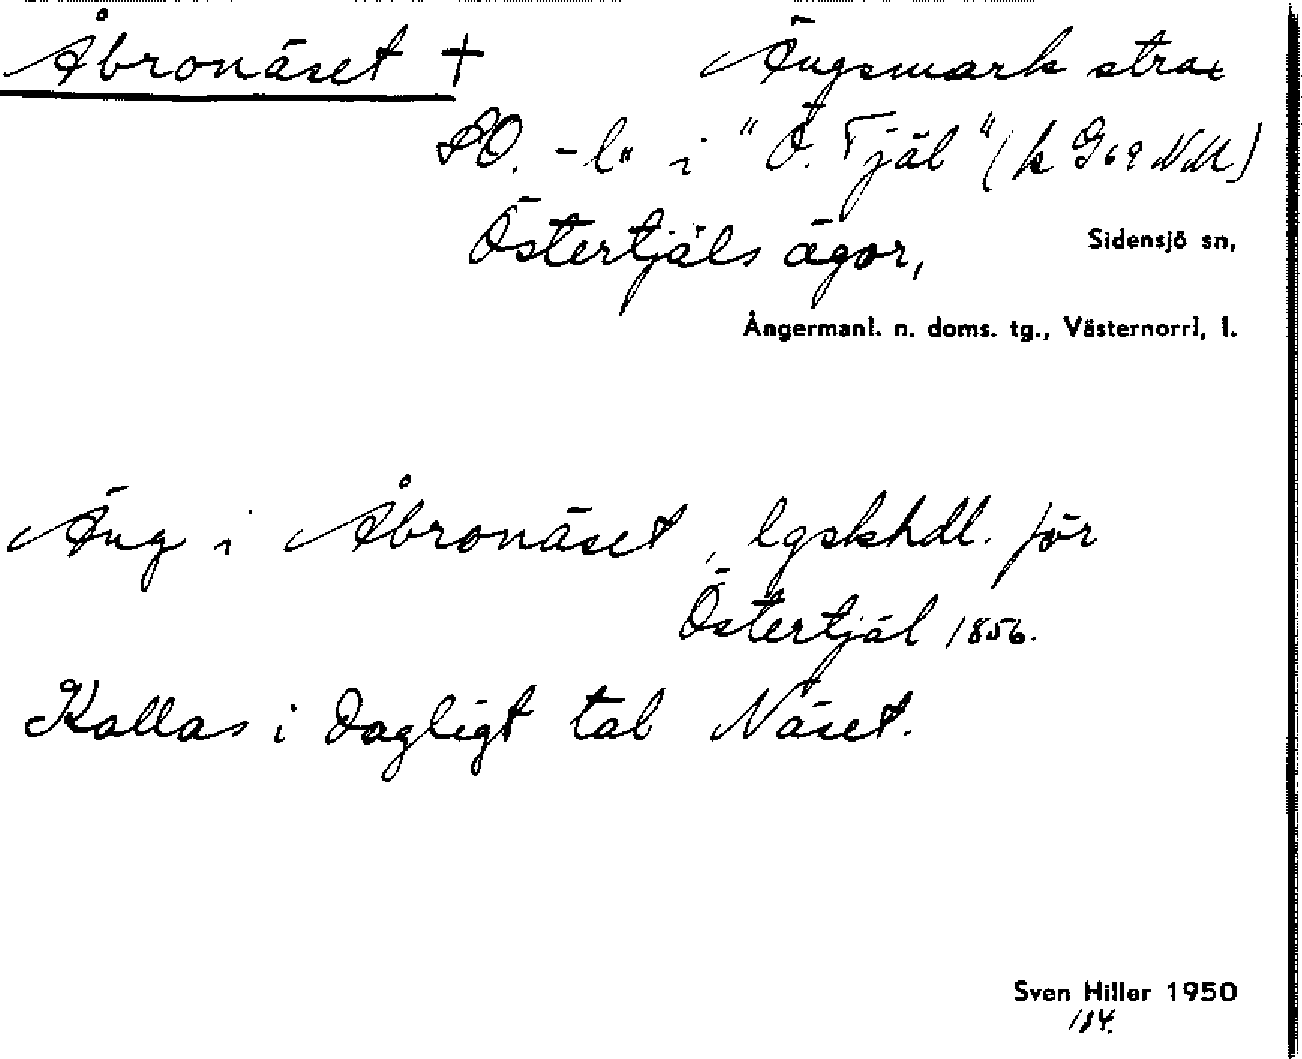 Åbronäset †
Ängsmark strax
SO. -l" i "Ö. Tjäl" (k G69 NM)
Östertjäls ägor,
Sidensjö sn,
Ångermanl. n. doms. tg., Västernorrl, l.
Äng i Åbronäset, lgskhdl. för
Östertjäl 1856.
Kallas i dagligt tal Näset.
Sven Hiller 1950
184.